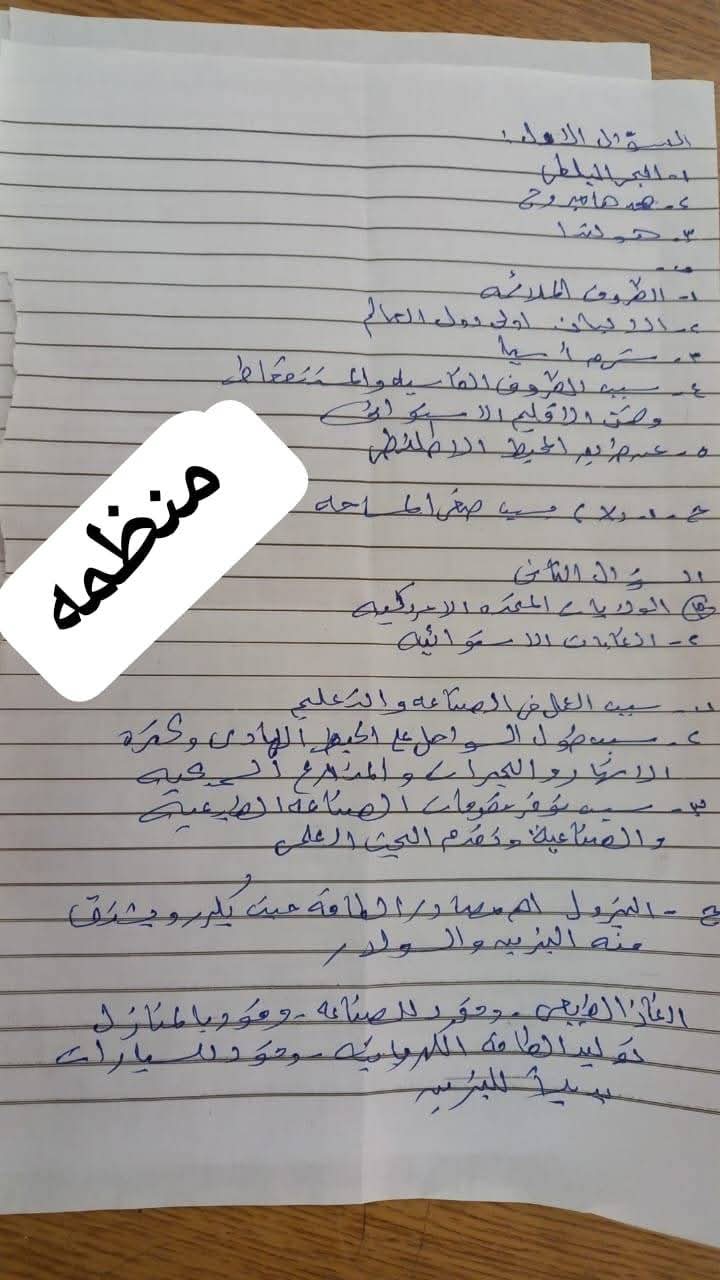 السؤال الاول:
١- البحر البلطى
٢- هامبروج
٣- هولندا
ب -
١- الظروف الملائمه
٢- اولى دول العالم
٣- اسيا
٤- بسبب الظروف القاسيه
الاقليم الاستوائى
٥- عن طريق المحيط الاطلنطى
ج - ١- بسبب صغر المساحه
السؤال الثانى
الولايات المتحده الامريكيه
٢- الغابات الاستوائيه
١- بسبب العمل فى الصناعه والتعليم
٢- بسبب طول السواحل على المحيط الهادى وكثرة
الانهار والبحيرات والمزارع السمكيه
٣- بسبب توفر مقومات الصناعه الطبيعية
والصناعية وتقدم البحث العلمى
ج - البترول اهم مصادر الطاقه حيث يُكرر ويشتق
منه البنزين والسولار
الغاز الطبيعى - وقود للصناعه - وقود بالمنازل
توليد الطاقه الكهربائيه - وقود للسيارات
بديلاً للبنزين
منظمه